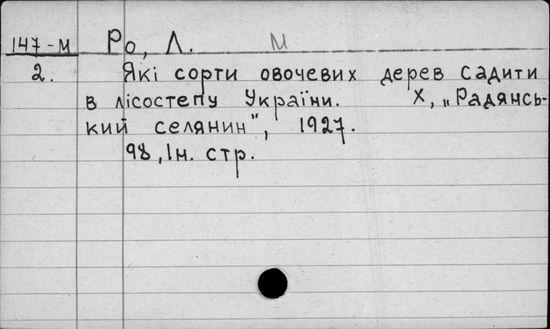 147-М Ро, Л. М
2. Які сорти овочевих дерев садити
в лісостепу України. Х, „Радянсь-
кий селянин", 1927.
98, Ін. стр.